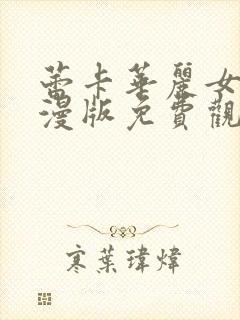 蕾卡華麗女
漫版免費觀
寒葉瑋煒